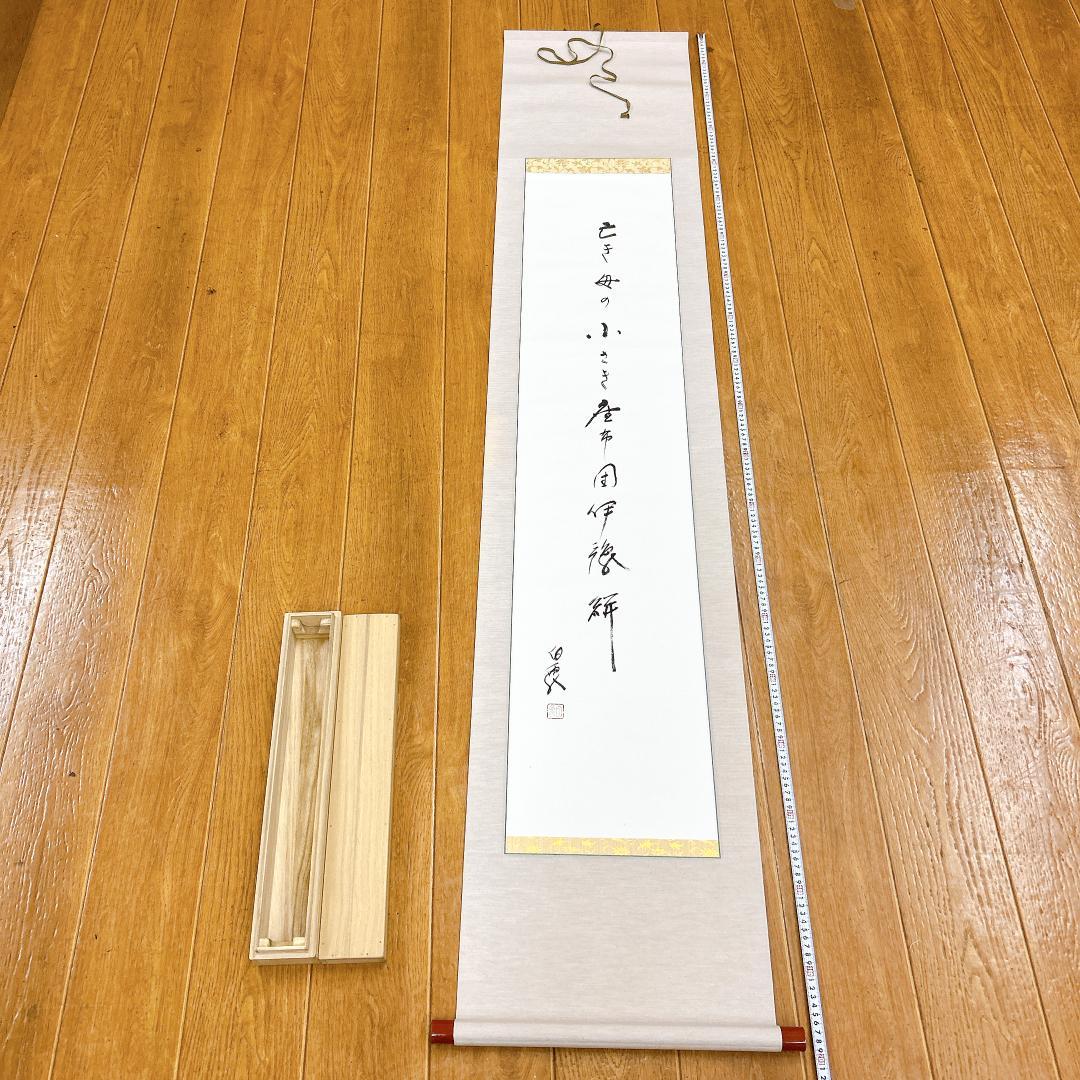 亡き母の小さき座布団伊豫絣
白雲